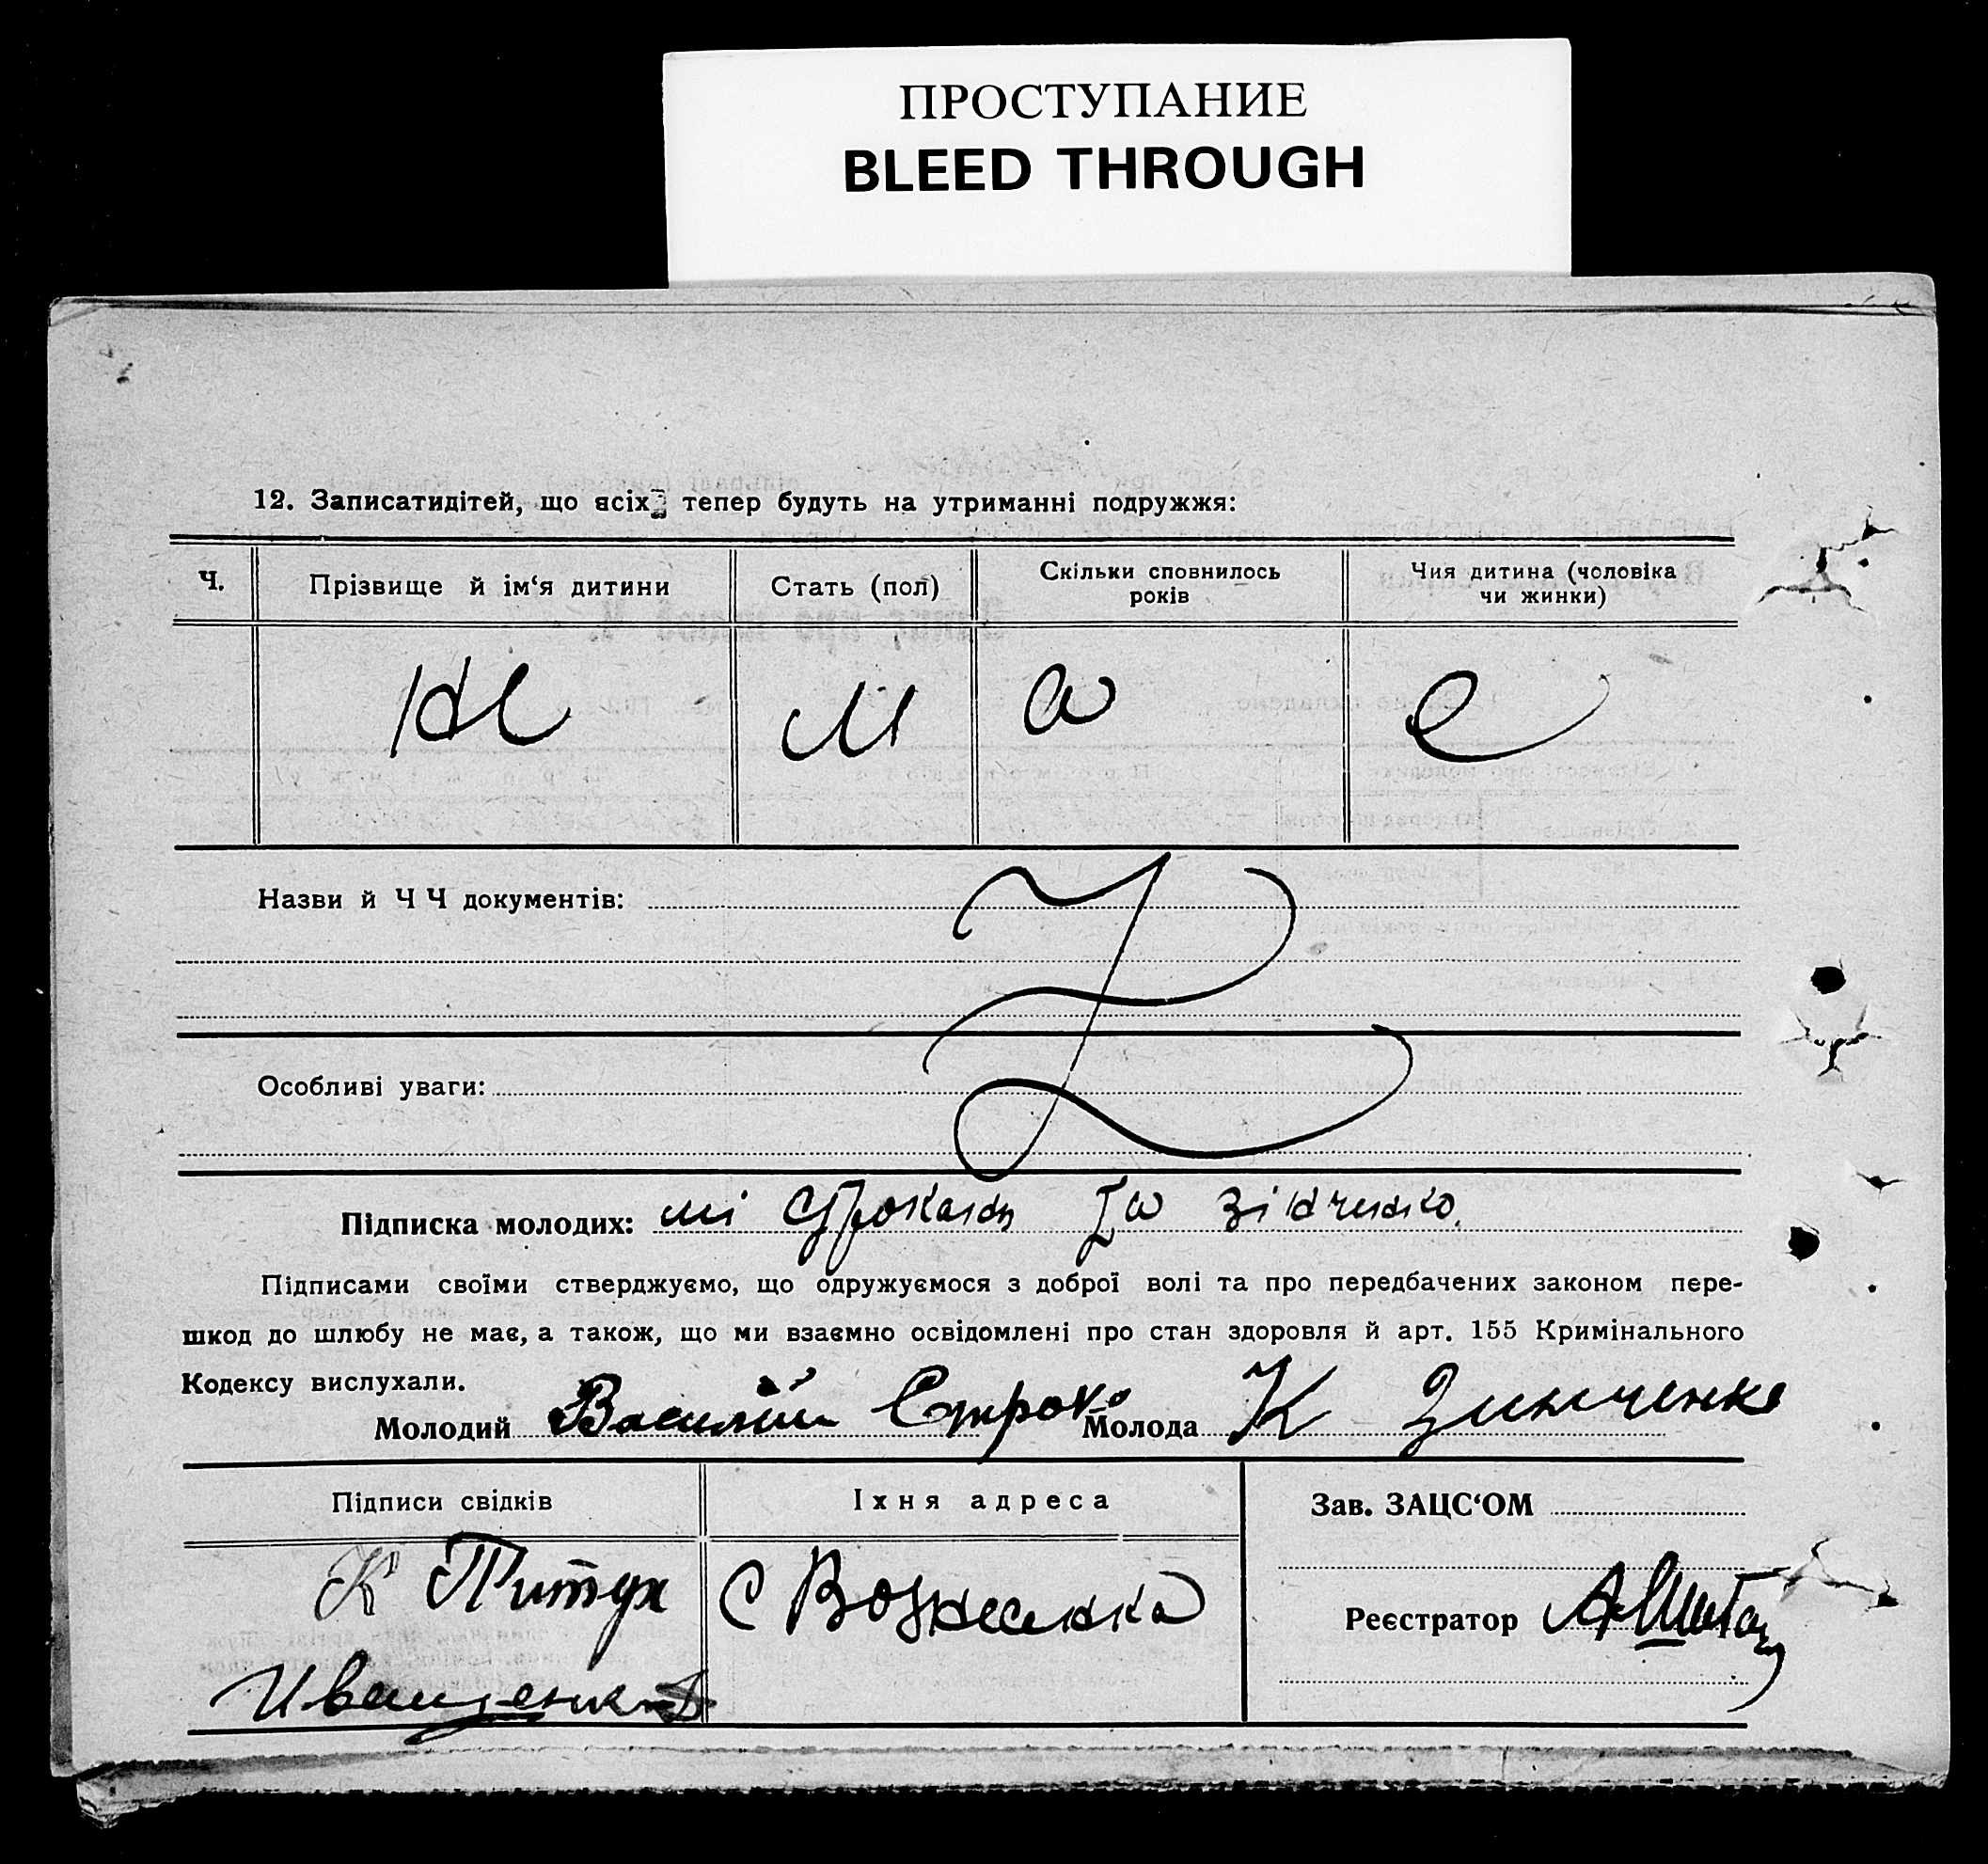 ПРОСТУПАНИЕ
BLEED THROUGH
12. Записатидітей, що всіх тепер будуть на утриманні подружжя:
Ч. Прізвище й ім‘я дитини Стать (пол) Скільки сповнилось років Чия дитина (чоловіка чи жинки)
Не м а е
Назви й ЧЧ документів:
Особливі уваги:
Підписка молодих: мі та Зінченко
Підписами своїми стверджуємо, що одружуємося з доброї волі та про передбачених законом пере-
шкод до шлюбу не має, а також, що ми взаємно освідомлені про стан здоровля й арт. 155 Кримінального
Кодексу вислухали.
Молодий Василий Строк Молода К Зинченко
Підписи свідків Іхня адреса Зав. ЗАЦС‘ОМ
К Питух С Вознесенка Реєстратор
Иващенко